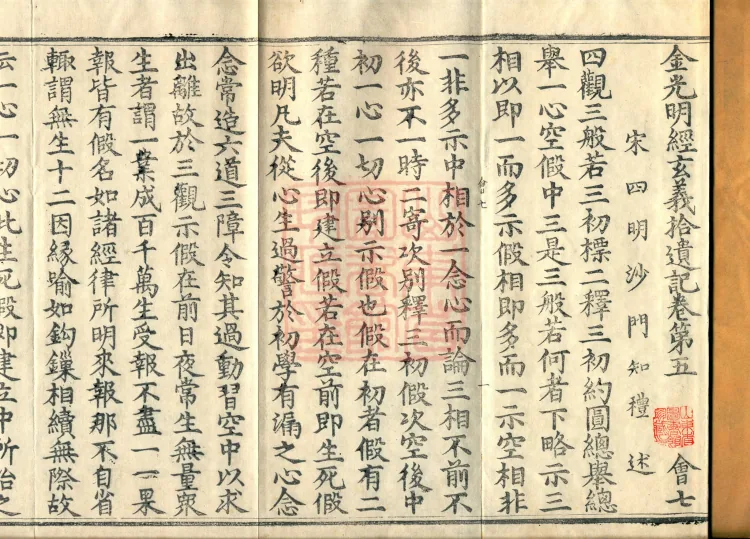 金光明經玄義拾遺記卷第五 會七
宋四明沙門知禮述
四觀三般若三初標二釋三初約圓總舉總
舉一心空假中三是三般若何者下略示三
相以即一而多示假相即多而一示空相非
會七 一
一非多示中相於一念心而論三相不前不
後亦不一時二寄次別釋三初假次空後中
初一心一切心別示假也假在初者假有二
種若在空後即建立假若在空前即生死假
欲明凡夫從心生過警於初學有漏之心念
念常造六道三障令知其過動習空中以求
出離故於三觀示假在前日夜常生無量眾
生者謂一業成百千萬生受報不盡一一果
報皆有假名如諸經律所明來報那不自省
輙謂無生十二因緣喻如鈎鏁相續無際故
云一心一切心此生死假即建立中所治之